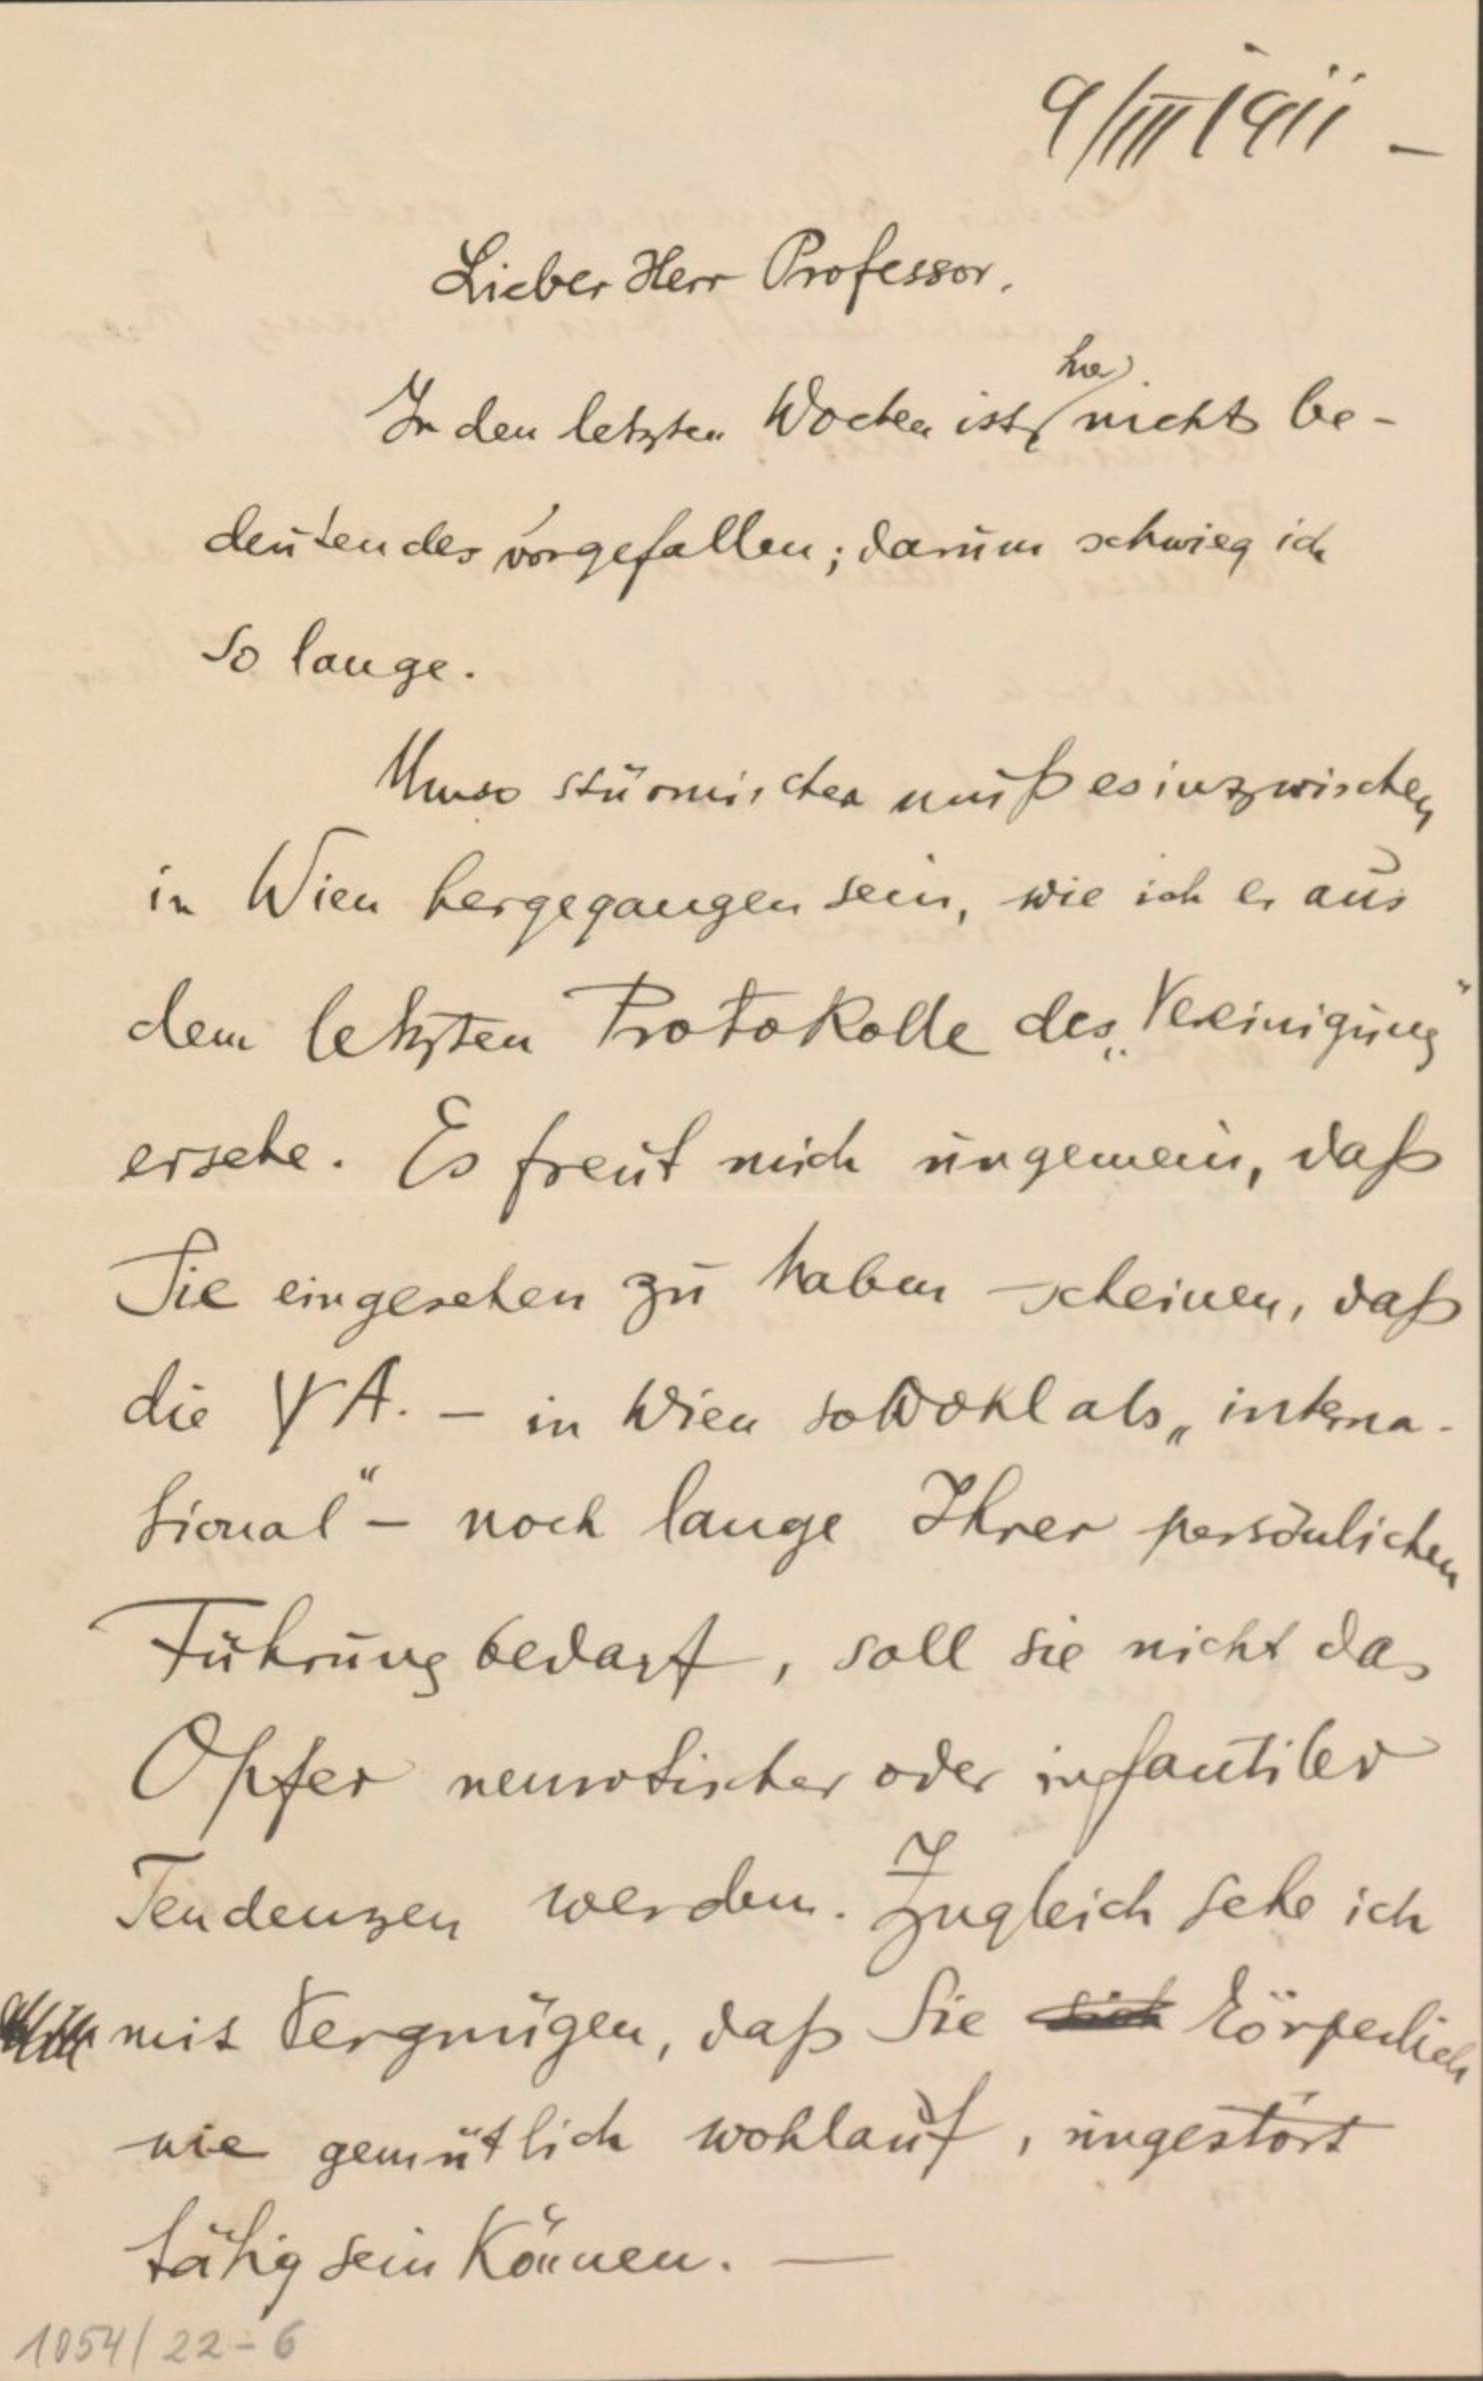 9/III 1911 –
Lieber Herr Professor.
hier
In den letzten Wochen ist nichts be-
deutendes vorgefallen; darum schwieg ich
so lange.
Umso stürmischer muß es inzwischen
in Wien hergegangen sein, wie ich es aus
dem letzten Protokolle der „Vereinigung"
ersehe. Es freut mich ungemein, daß
Sie eingesehen zu haben scheinen, daß
die ΨA. – in Wien sowohl als „interna-
tional" – noch lange Ihrer persönlichen
Führung bedarf, soll sie nicht das
Opfer neurotischer oder infantiler
Tendenzen werden. Zugleich sehe ich
mit Vergnügen, daß Sie sich körperlich
wie gemütlich wohlauf, ungestört
tätig sein können. —
1054/22-6